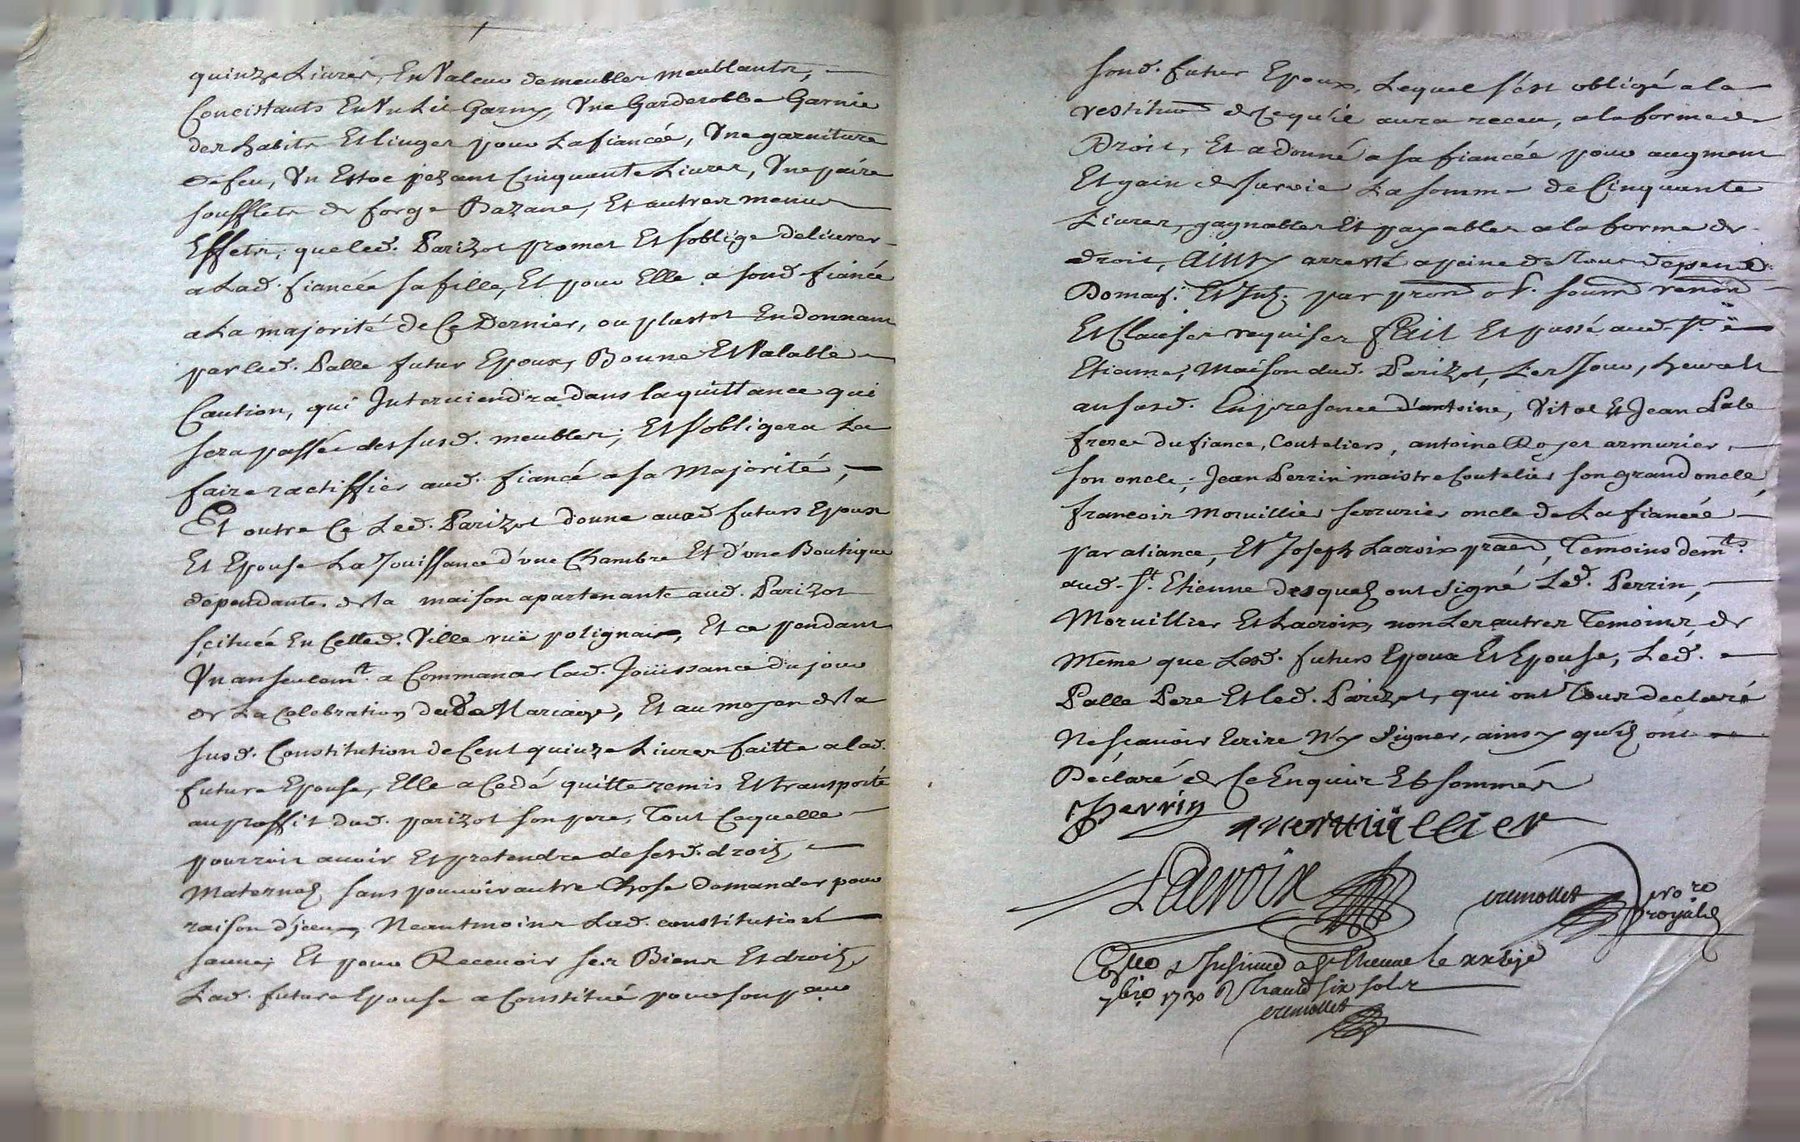 quinze Livres, En Valeur de meubles meublants,
Concistants En Vn Lit Garny, Vne Garderobbe Garnie
des habits Et linges pour La fiancée, Vne garniture
de feu, Vn Estoc pezant Cinquante Livres, Vne paire
soufflets de forge Bazane, Et autres menus
Effets, que led. Parizot promet Et soblige delivrer
a Lad. fiancée sa fille, Et pour Elle a sond. fiancé
a La majorité de Ce Dernier, ou plustot En donnant
par led. Palle futur Epoux, Bonne Et Valable
Caution, qui Interviendra dans la quittance qui
sera passée des susd. meubles; Et sobligera La
faire ractiffier aud. fiancé a sa Majorité,
Et outre Ce Led. Parizot donne aux futurs Epoux
Et Epouse La Jouissance d'vne Chambre Et d'vne Boutique
dependantes de la maison apartenante aud. Parizot
scituée En Cetted. Ville rüe polignais, Et ce pendant
Vn an seulemt. a Commancer lad. Joüissance du jour
de La Celebration dud. Mariage, Et au moyen de la
susd. Constitution de Cent quinze Livres faitte a lad.
future Epouse, Elle a Cedé quitte remis Et transporté
au proffit dud. parizot son pere, Tout Ce quelle
pourroit avoir Et pretendre de sesd. droits
Maternels sans pouvoir autre Chose demander pour
raison d'iceux, Neantmoins Lad. constitution
sauve; Et pour Recevoir ses Biens Et droits
Lad. future Epouse a Constitué pour son
sond. futur Epoux, Lequel s'est obligé a la
restitution de Ce qu'il aura receu, a la forme de
Droit, Et a donné a sa fiancée pour augment
Et gain de survie La somme de Cinquante
Livres, gagnables Et payables a la forme de
droit, Ainsy arresté a peine de Tous depend
Domag. Et Int. par prom obl. soum renon
Et Clauses requises fait Et passé aud. St.
Etienne, Maison dud. Parizot, Les Jour, heure Et
an susd. En presence d'antoine, Vital Et Jean Pale
freres du fiance, Couteliers, antoine Royer armurier
son oncle; Jean Perrin maistre Coutelier son grand oncle,
francois Morvillier serrurier oncle de La fiancée
par aliance, Et Joseph Lacroix praen, Temoins demts.
aud. St. Etienne desquels ont signé Led. Perrin,
Morvillier Et Lacroix, non Les autres Temoins, de
Meme que Lesd. futurs Epoux Et Epouse, Led.
Palle Pere Et led. Parizot, qui ont Tous declaré
Ne scavoir Ecrire Ny signer, ainsy qu'ils ont
Declaré de Ce Enquis Et sommés
Perrin
morvüillier
Lacroix
cremollet
no.re
royal
&  a St Etienne le
7bre 1730 six sols
cremollet